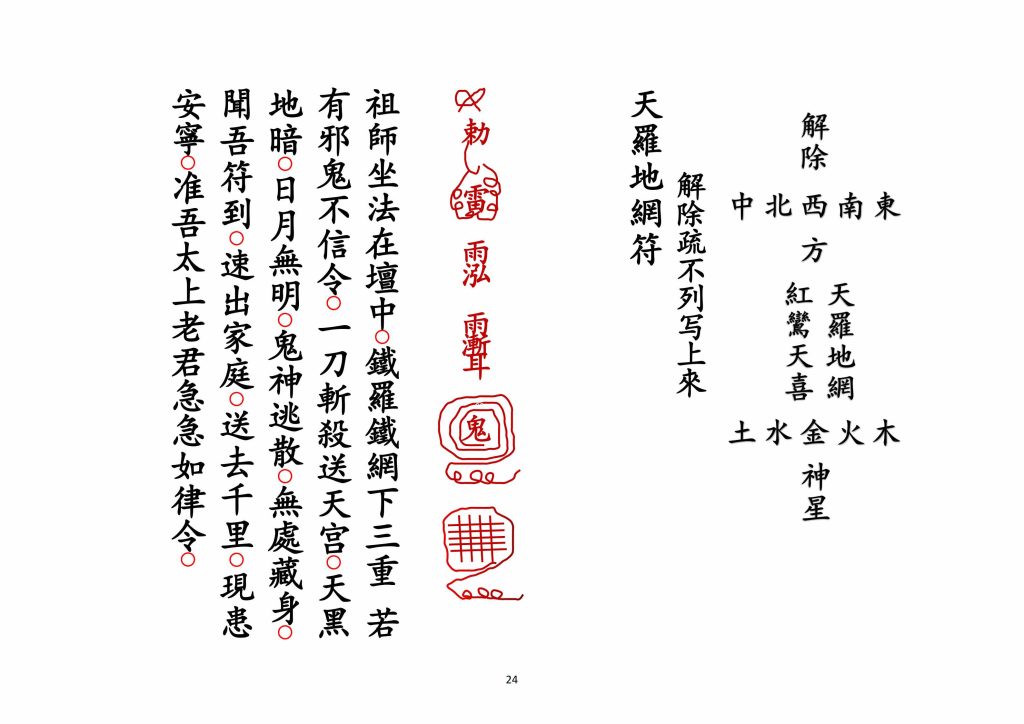 解除
東南西北中
方
天羅地網
紅鸞天喜
木火金水土
神星
解除疏不列写上來
天羅地網符
勅 雨泓 雨漸耳 鬼
祖師坐法在壇中○鐵羅鐵網下三重 若
有邪鬼不信令○一刀斬殺送天宮○天黑
地暗○日月無明○鬼神逃散○無處藏身○
聞吾符到○速出家庭○送去千里○現患
安寧○准吾太上老君急急如律令○
24